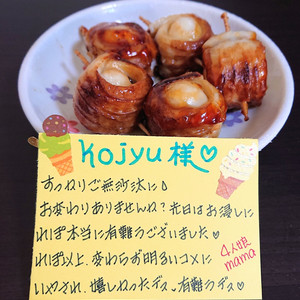 kojyu様♡
すっかりご無沙汰に♪
お変わりありませんね?先日はお漫しに
れぽ本当に有難うございました♡
れぽ以上、変わらず明るいコメに
いやされ、嬉しかったデス〜有難うデス♡
4人娘
mama